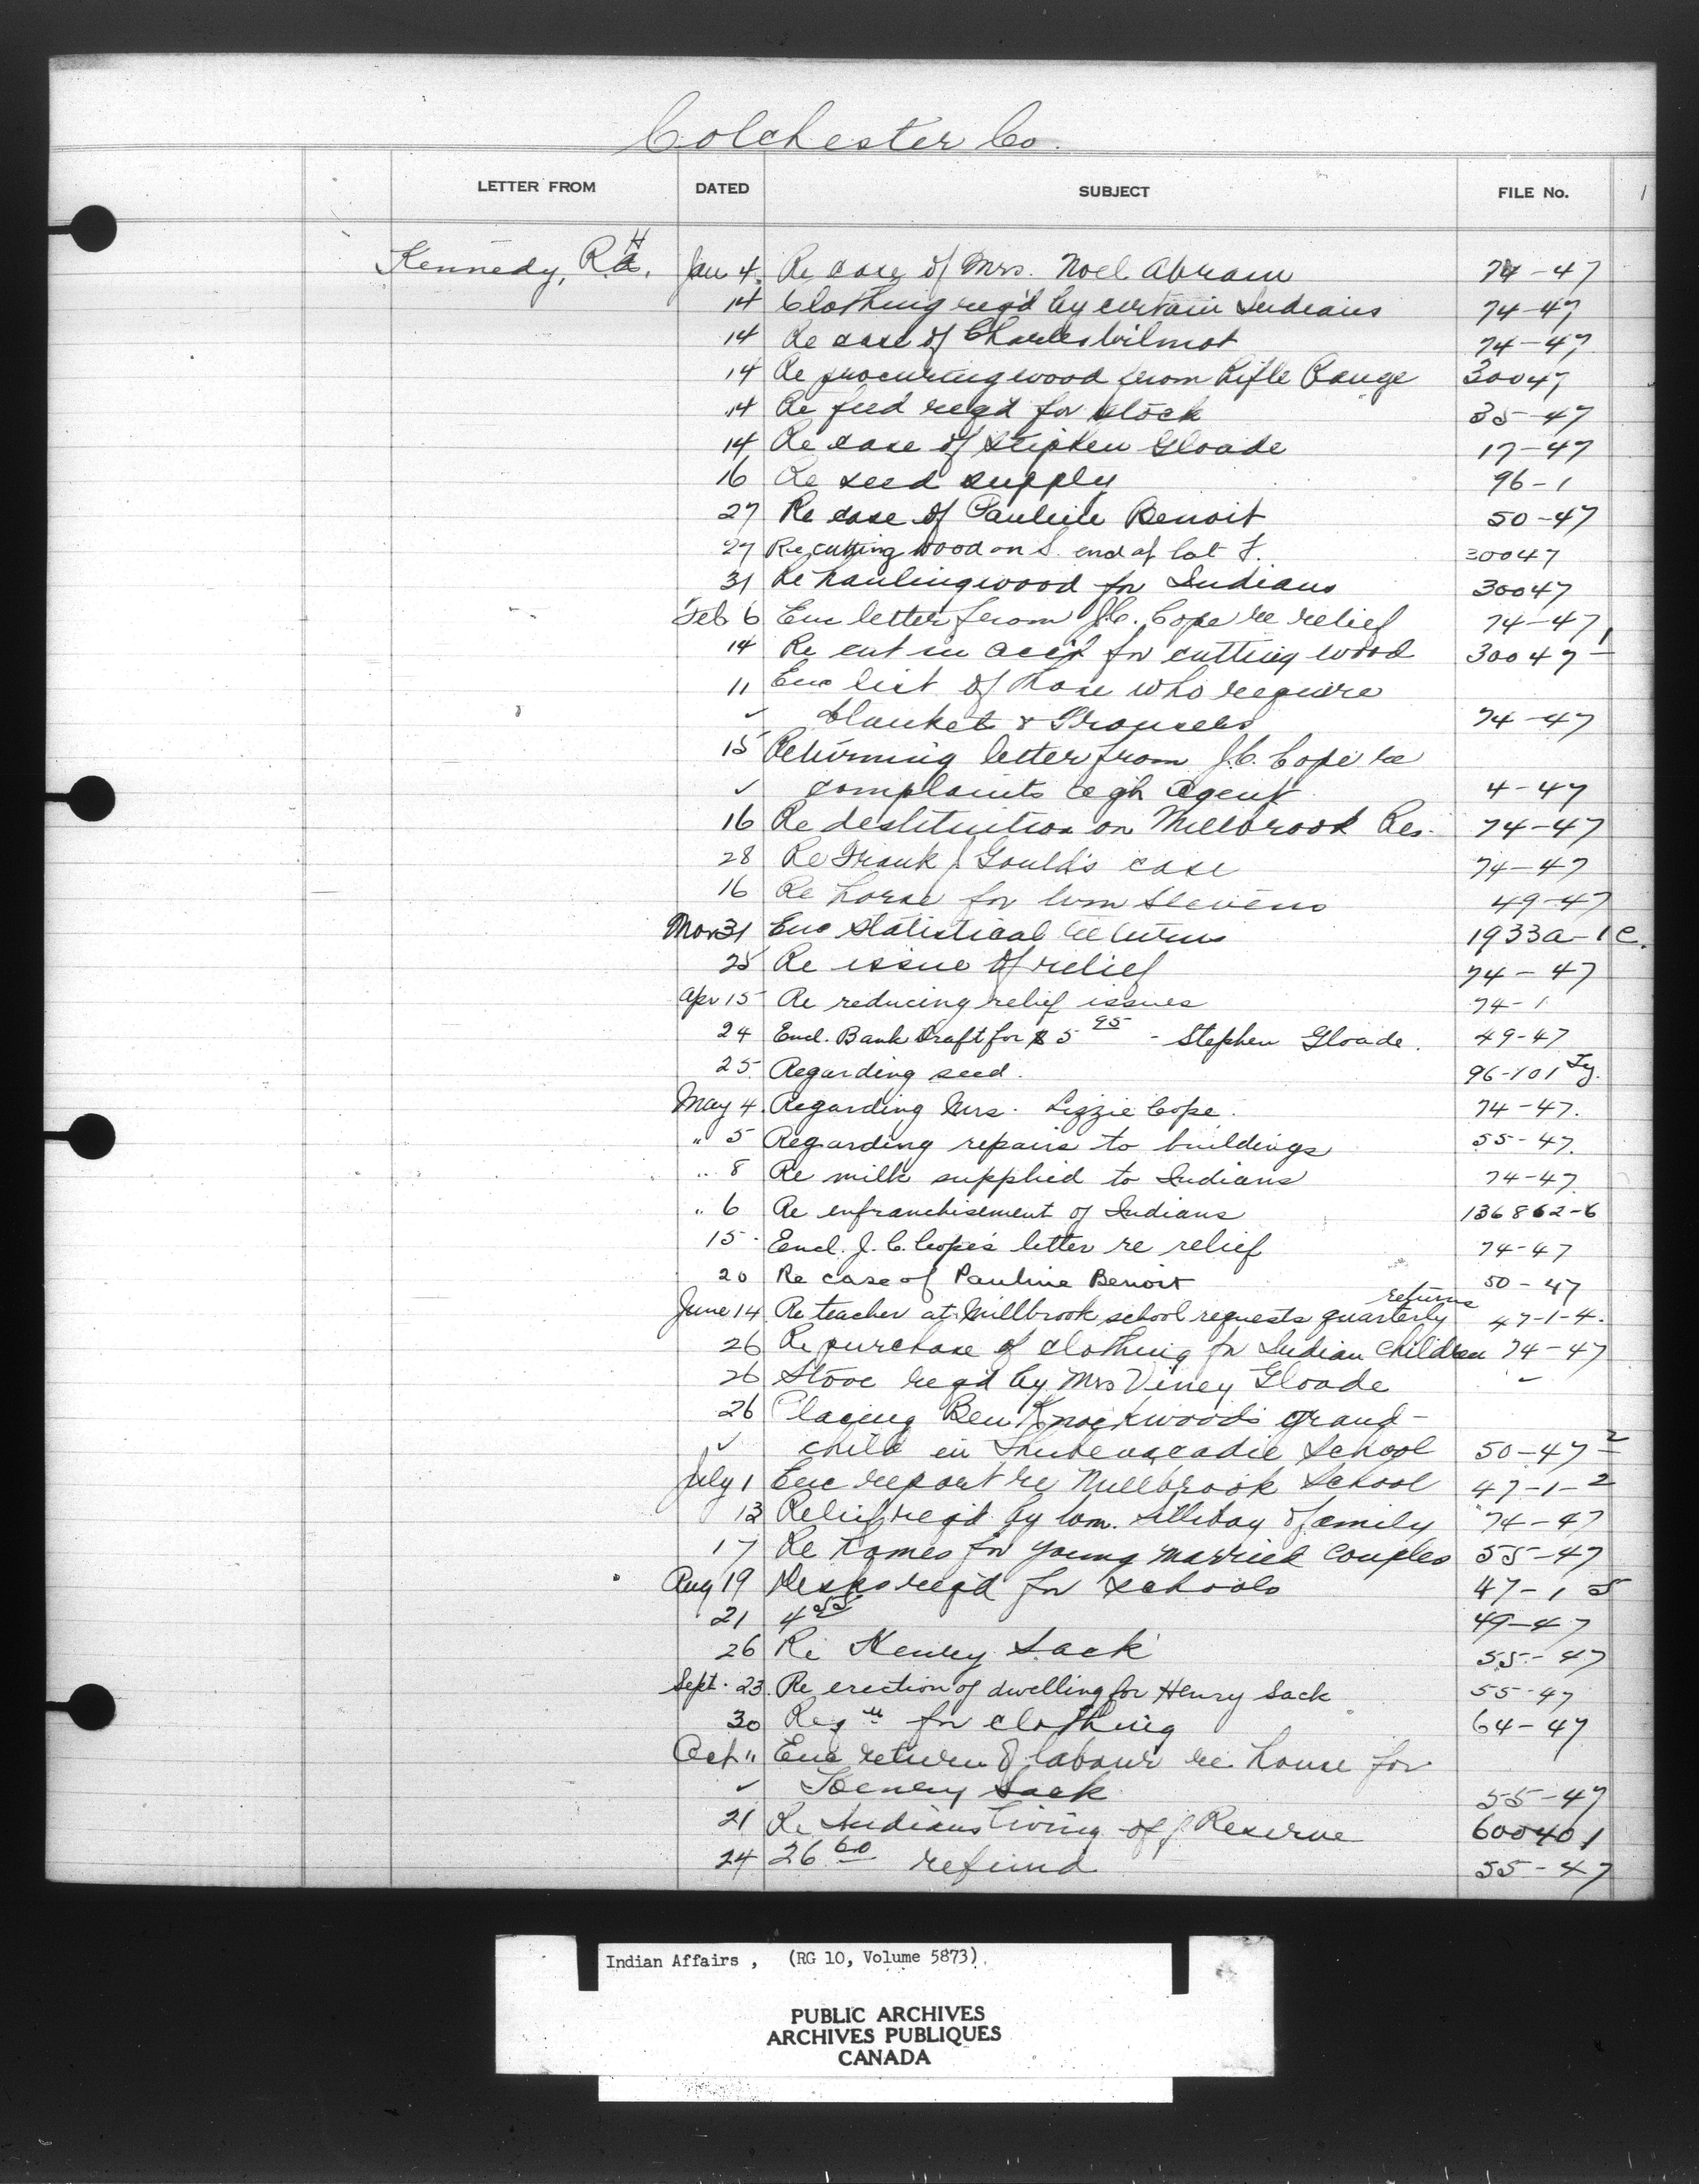 Colchester Co.
LETTER FROM DATED SUBJECT FILE No. 1
Kennedy, R.H. Jan 4. Re case of Mrs. Noel Abram 74-47
14 Clothing reqd by certain Indians 74-47
14 Re case of Charles Wilmot 74-47
14 Re procuring wood from Rifle Range 30047
14 Re feed reqd for stock 35-47
14 Re case of Stephen Gloade 17-47
16 Re seed supply 96-1
27 Re case of Pauline Benoit 50-47
27 Re cutting wood on S. end of lot F. 30047
31 Re hauling wood for Indians 30047
Feb 6 Enc letter from J.C. Cope re relief 74-47
14 Re cut in acct for cutting wood 30047-1
11 Enc list of those who require
✓ blanket & Trousers 74-47
15 Returning letter from J.C. Cope re
✓ complaints agn Agent 4-47
16 Re destitution on Millbrook Res. 74-47
28 Re Frank J Gould's case 74-47
16 Re horse for Wm Stevens 49-47
Mar 31 Enc Statistical Returns 1933a-1C.
25 Re issue of relief 74-47
Apr 15 Re reducing relief issues 74-1
24 Encl. Bank Draft for $5 95 - Stephen Gloade. 49-47
25. Regarding seed. 96-101
May 4. Regarding Mrs. Lizzie Cope. 74-47.
" 5 Regarding repairs to buildings 55-47.
" 8 Re milk supplied to Indians 74-47.
" 6 Re enfranchisement of Indians 136862-6
15. Encl. J.C. Cope's letter re relief 74-47
20 Re case of Pauline Benoit 50-47
June 14 Re teacher at Millbrook school requests quarterly returns 47-1-4.
26 Re purchase of clothing for Indian children 74-47
26 Stove reqd by Mrs Viney Gloade ✓
26 Placing Ben Knockwood's grand-
✓ child in Shubenacadie School 50-47-2
July 1 Enc report re Millbrook School 47-1-2
13 Relief reqd by Wm. Sillibay & family 74-47
17 Re homes for young married couples 55-47
Aug 19 Desks reqd for schools 47-1 5
21 4 55 49-47
26 Re Henry Sack 55-47
Sept. 23. Re erection of dwelling for Henry Sack 55-47
30 Reqn for clothing 64-47
Oct " Enc return of labour re house for
✓ Henry Sack 55-47
21 Re Indians living off Reserve 600401
24 26 60 refund 55-47
Indian Affairs , (RG 10, Volume 5873)
PUBLIC ARCHIVES
ARCHIVES PUBLIQUES
CANADA